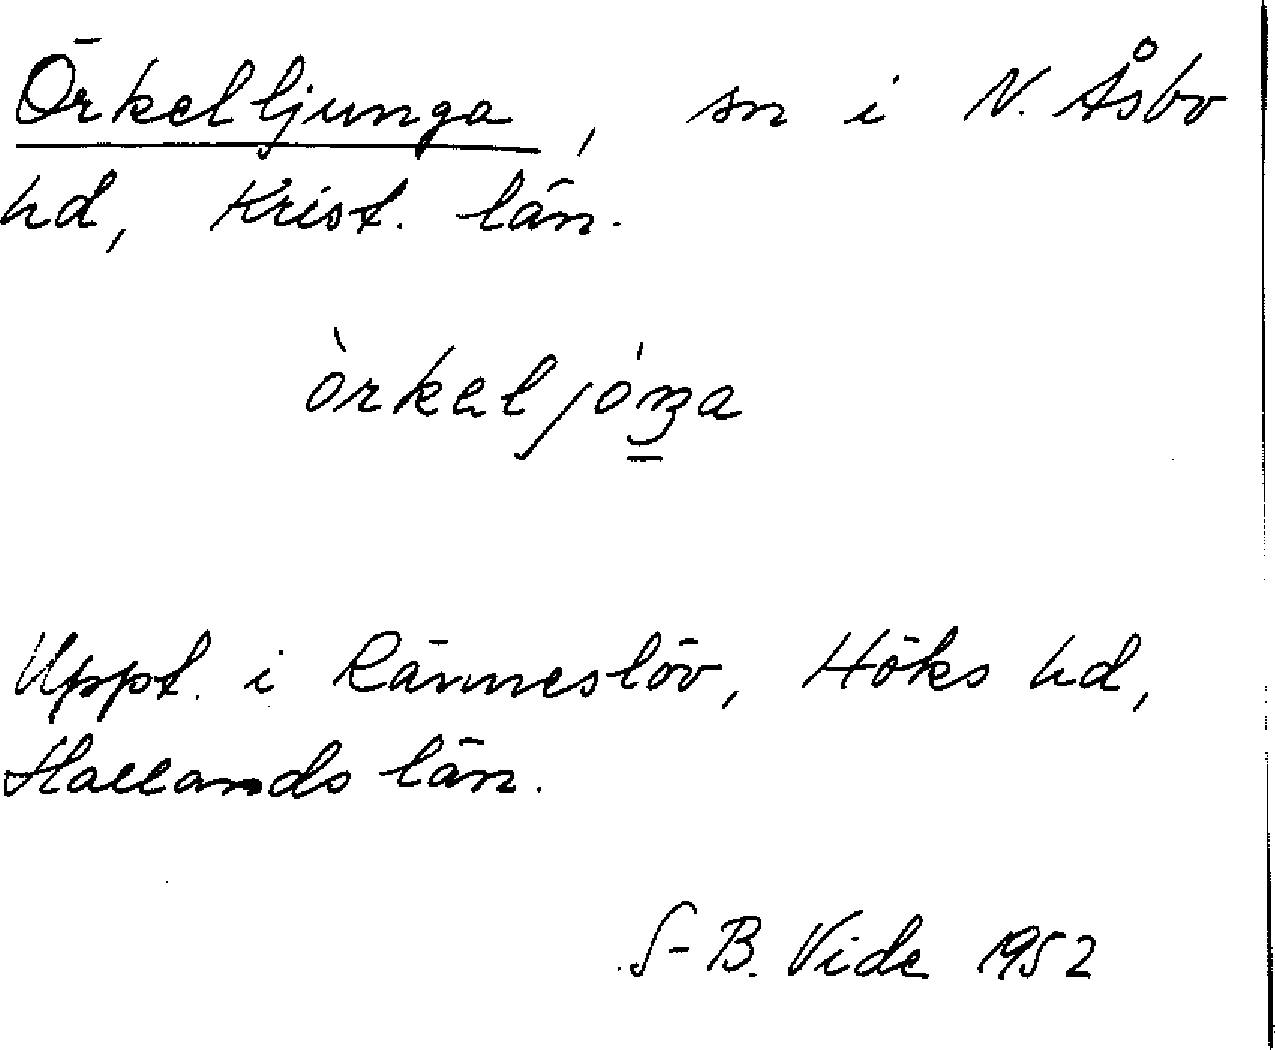 Örkelljunga, sn i N. Åsbo
hd, Krist. län.
òrkelјóŋa
Uppt. i Ränneslöv, Höks hd,
Hallands län.
S-B. Vide 1952